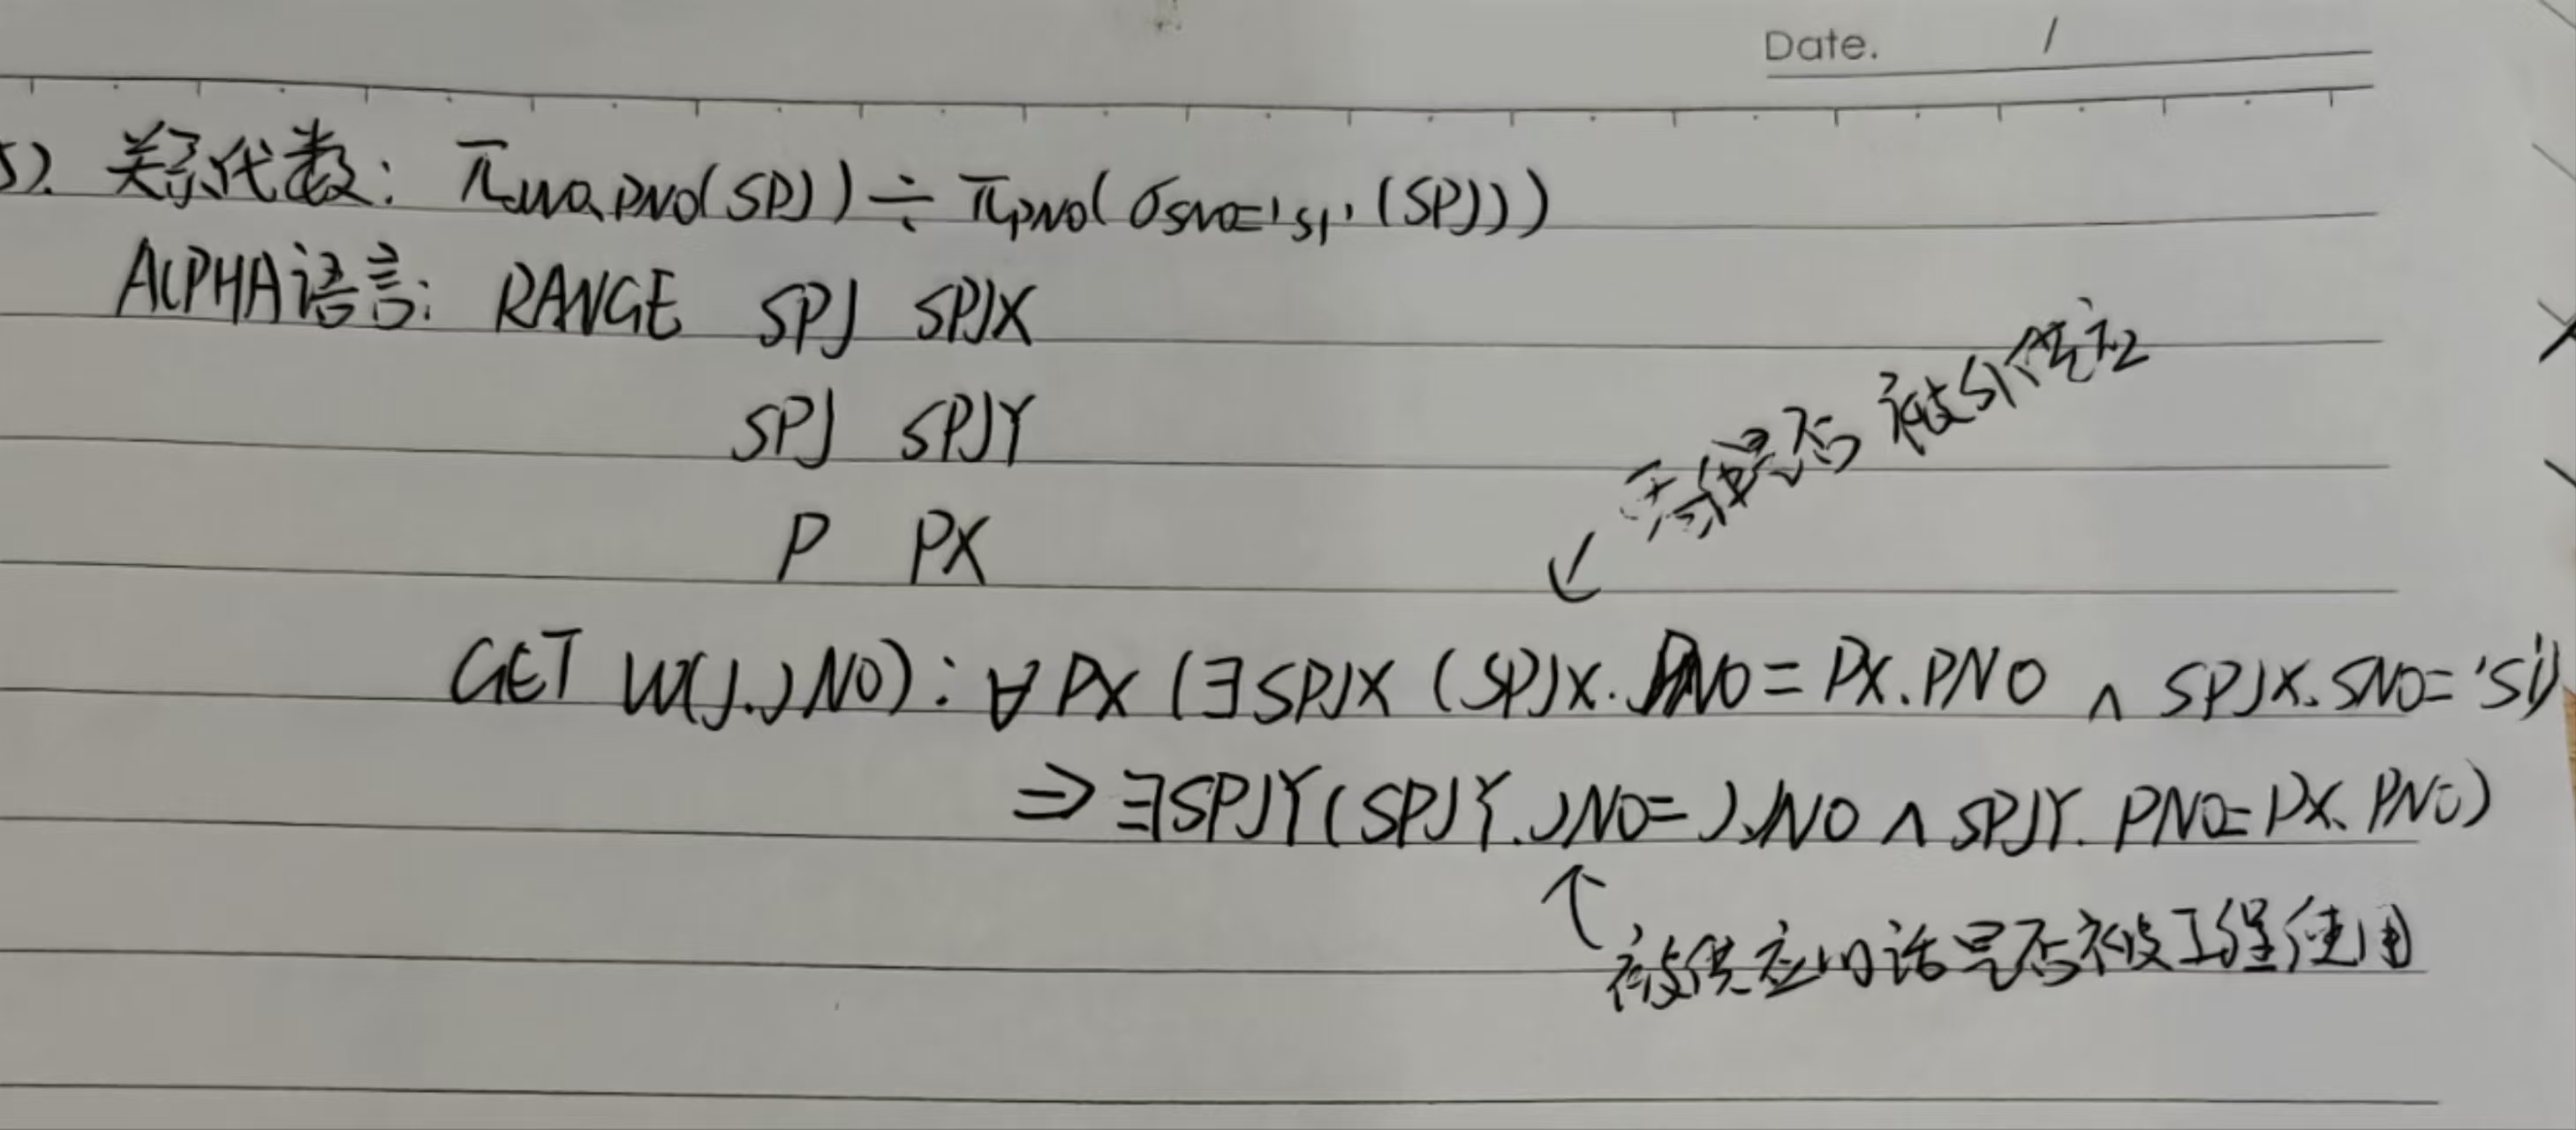 Date. /
5). 关系代数: π JNO,PNO(SPJ) ÷ πPNO(σSNO='S1'(SPJ))
ALPHA语言: RANGE SPJ SPJX
SPJ SPJY
P PX
零件是否被S1供应
↙
GET W(J.JNO): ∀PX (∃SPJX (SPJX.PNO=PX.PNO ∧ SPJX.SNO='S1')
⇒ ∃SPJY(SPJY.JNO=J.JNO ∧ SPJY.PNO=PX.PNO)
↑
被供应的话是否被工程使用